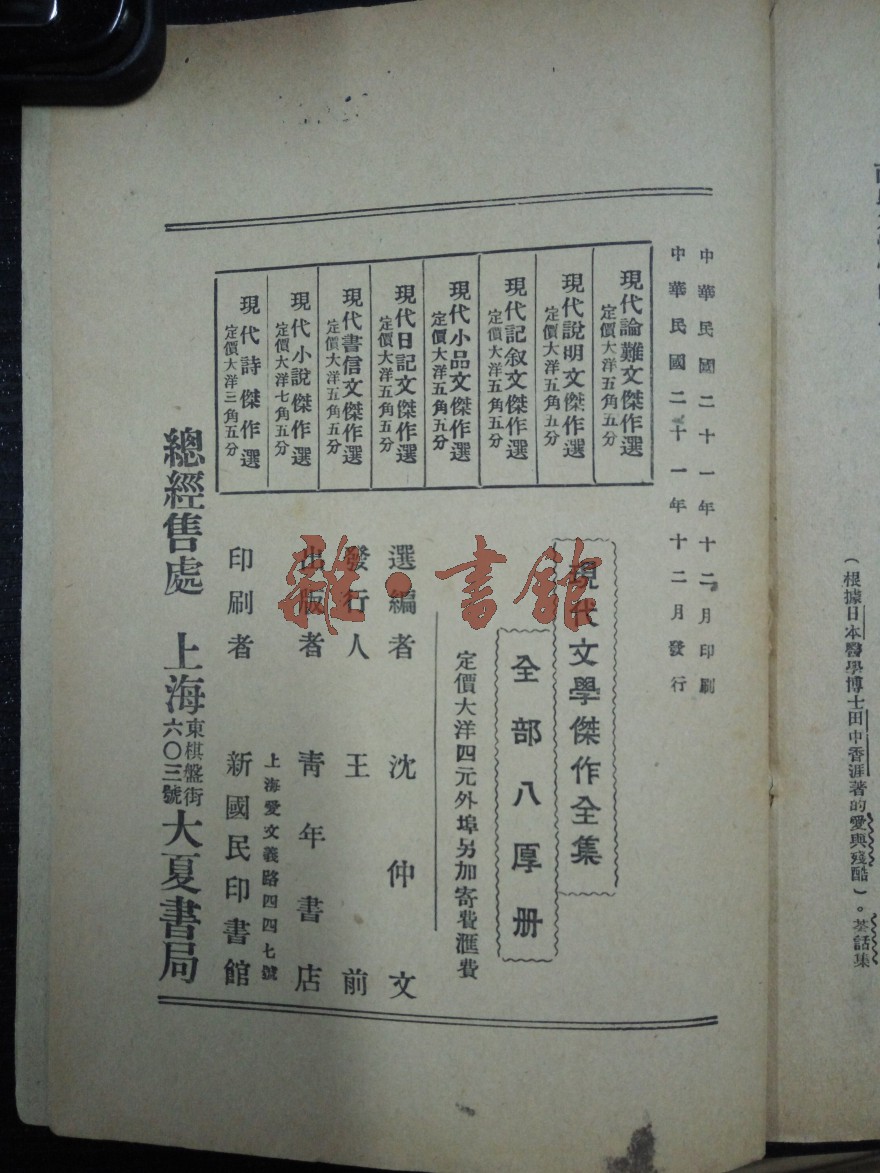 中華民國二十一年十二月印刷
中華民國二十一年十二月發行
現代論難文傑作選
定價大洋五角五分
現代說明文傑作選
定價大洋五角五分
現代記叙文傑作選
定價大洋五角五分
現代小品文傑作選
定價大洋五角五分
現代日記文傑作選
定價大洋五角五分
現代書信文傑作選
定價大洋五角五分
現代小說傑作選
定價大洋七角五分
現代詩傑作選
定價大洋三角五分
現代文學傑作全集
全部八厚册
定價大洋四元外埠另加寄費滙費
選編者 沈仲文
發行人 王前
出版者 靑年書店
上海愛文義路四四七號
印刷者 新國民印書館
總經售處 上海東棋盤街六〇三號大夏書局
(根據日本醫學博士田中香涯著的愛與殘酷)。茶話集
雜·書館